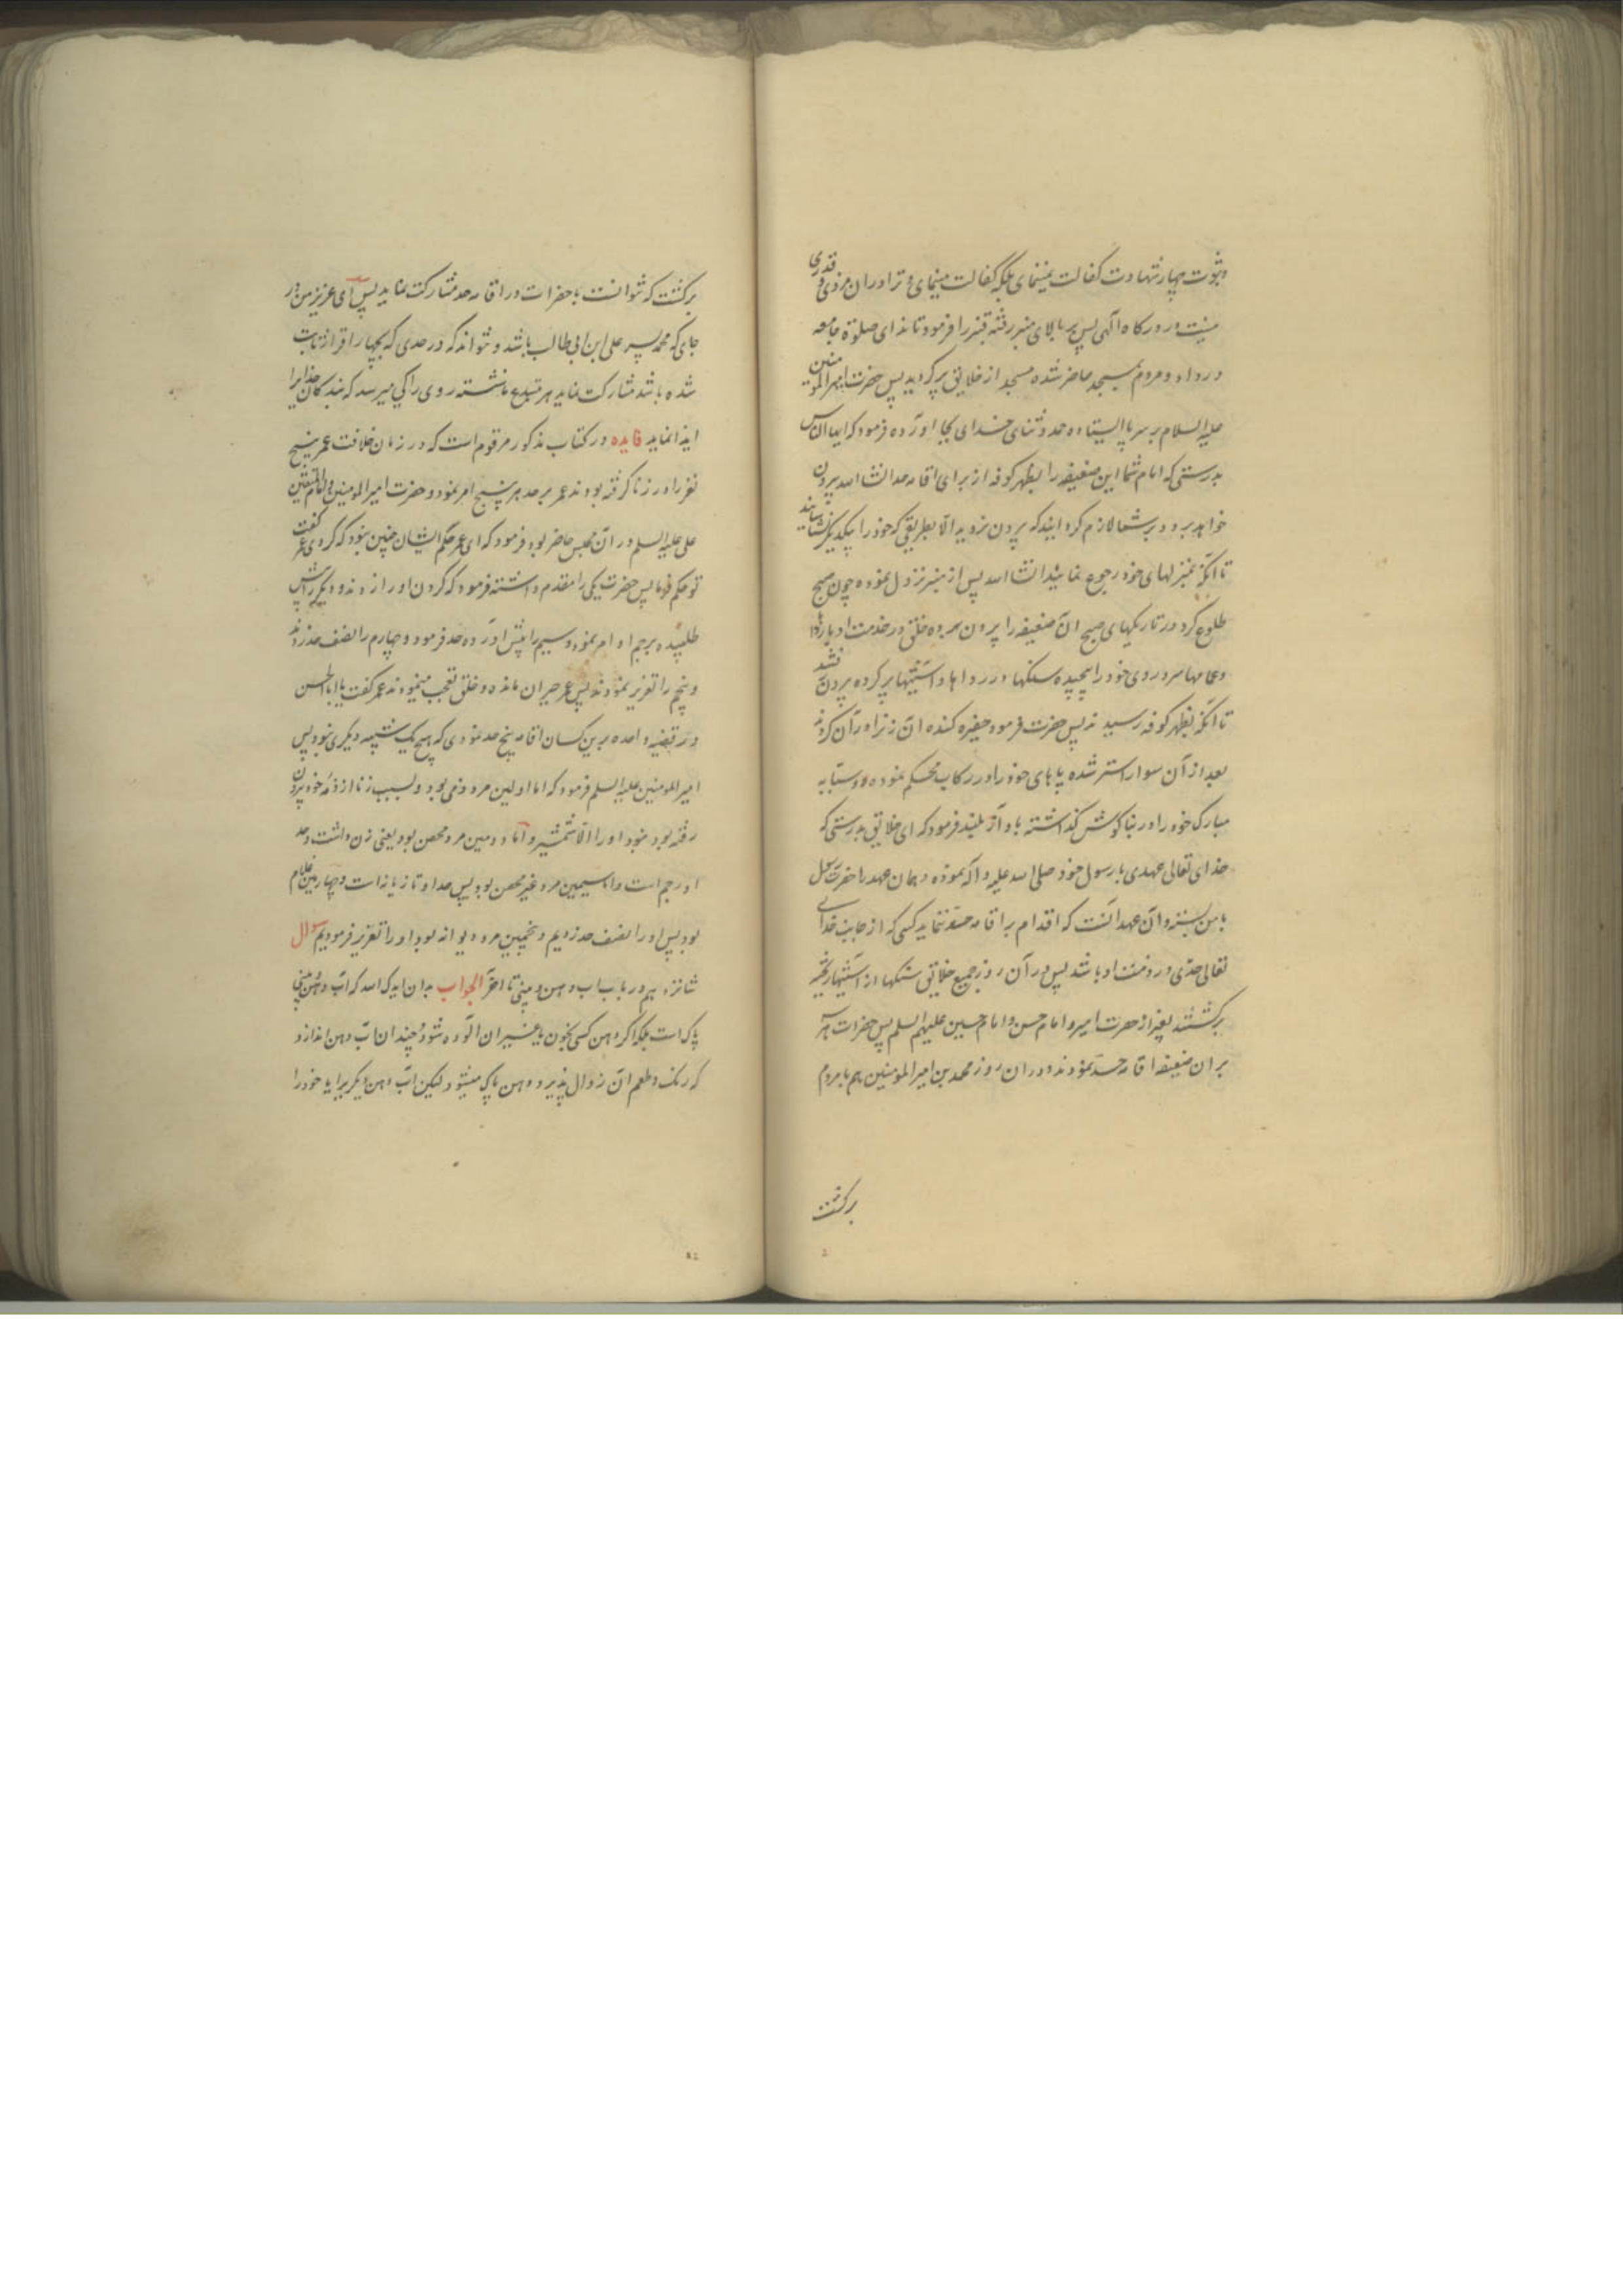 و ثبوت چهار شهادت کفالت نمینمای بلکه کفالت مینمای و ترا در ان مزدی و قدری
نیست در درکاه الهی پس بر بالای منبر رفته قنبر را فرمود تا ندای صلوة جامعه
در داد و مردم بمسجد حاضر شده مسجد از خلایق پر کردید پس حضرت امیر المومنین
علیه السلام بر سر پا ایستاده حمد و ثنای خدای بجا اورده فرمود که ایها الناس
بدرستی که امام شما این ضعیفه را بظهر کوفه از برای اقامه حد انشا الله بیرون
خواهد برد و بر شما لازم کرد انید که بیرون نروید الا بطریقی که خود را بیکدیکر نشناسانید
تا انکه بمنزلهای خود رجوع نمایید انشا الله پس از منبر نزول نموده چون صبح
طلوع کرد در تاریکیهای صبح ان ضعیفه را بیرون برده خلق در خدمت او با رداها
و عمامها سر و روی خود را پیچیده سنکها در رداها و استینها پر کرده بیرون شدند
تا انکه بظهر کوفه رسیدند پس حضرت فرمود حفیره کنده ان زنرا در ان کردند
بعد از آن سوار استر شده پاهای خود را در رکاب محکم نموده دو سبابه
مبارک خود را در بناکوش کذاشته باواز بلند فرمود که ای خلایق بدرستی که
خدای تعالی عهدی با رسول خود صلی الله علیه و آله نموده و همان عهد را حضرت رسول
با من بسته و آن عهد انست که اقدام بر اقامه حد ننماید کسی که از جانب خدای
تعالی حدی در ذمت او باشد پس در آن روز جمیع خلایق سنکها از استینها ریخته
برکشتند بغیر از حضرت امیر و امام حسن و امام حسین علیهم السلم پس حضرات هر سه
بر ان ضعیفه اقامه حد نمودند و در ان روز محمد بن امیر المومنین هم با مردم
برکشت
برکشت که نتوانست با حضرات در اقامه حد مشارکت نماید پس ای عزیز من در
جای که محمد پسر علی ابن ابی طالب باشد و نتواند که در حدی که بچهار اقرار ثابت
شده باشد مشارکت نماید هر مبتدع ناشسته روی را کی میرسد که بندکان خدا را
ایذا نماید فایده در کتاب مذکور مرقوم است که در زمان خلافت عمر پنج
نفر را در زنا کرفته بودند عمر بر حد هر پنج امر نمود و حضرت امیر المومنین و امام المتقین
علی علیه السلم در آن مجلس حاضر بود فرمود که ای عمر حکم ایشان چنین نبود که کردی عمر کفت
تو حکم فرما پس حضرت یکی را مقدم داشته فرمود که کردن او را زدند و دیکر را پیش
طلبیده برجم او امر نموده و سیم را پیش اورده حد فرمود و چهارم را نصف حد زدند
و پنجم را تعزیر نمودند پس عمر حیران مانده و خلق تعجب مینمودند عمر کفت یا ابا الحسن
در قضیه واحده بر پن کسان اقامه پنج حد نمودی که هیچ یک شبیه دیکری نبود پس
امیر المومنین علیه السلم فرمود که اما اولین مرد ذمی بود و بسبب زنا از ذمه خود بیرون
رفته بود نبود او را الا شمشیر و اما دومین مرد محصن بود یعنی زن داشت و حد
او رجم است و اما سیمین مرد غیر محصن بود پس حد او تازیانه است و چهارمین غلام
بود پس او را نصف حد زدیم و پنجمین مرد دیوانه بود او را تعزیر فرمودیم سوال
شانزدهم در باب اب دهن و بینی تا اخر الجواب بدان ایدک الله که آب دهن و بینی
پاک است بلکه اکر دهن کسی بخون یا بغیر ان الوده شود و چندان آب دهن اندازد
که رنک و طعم ان زوال پذیرد دهن پاک میشود و لیکن آب دهن دیکر برا یا خود را